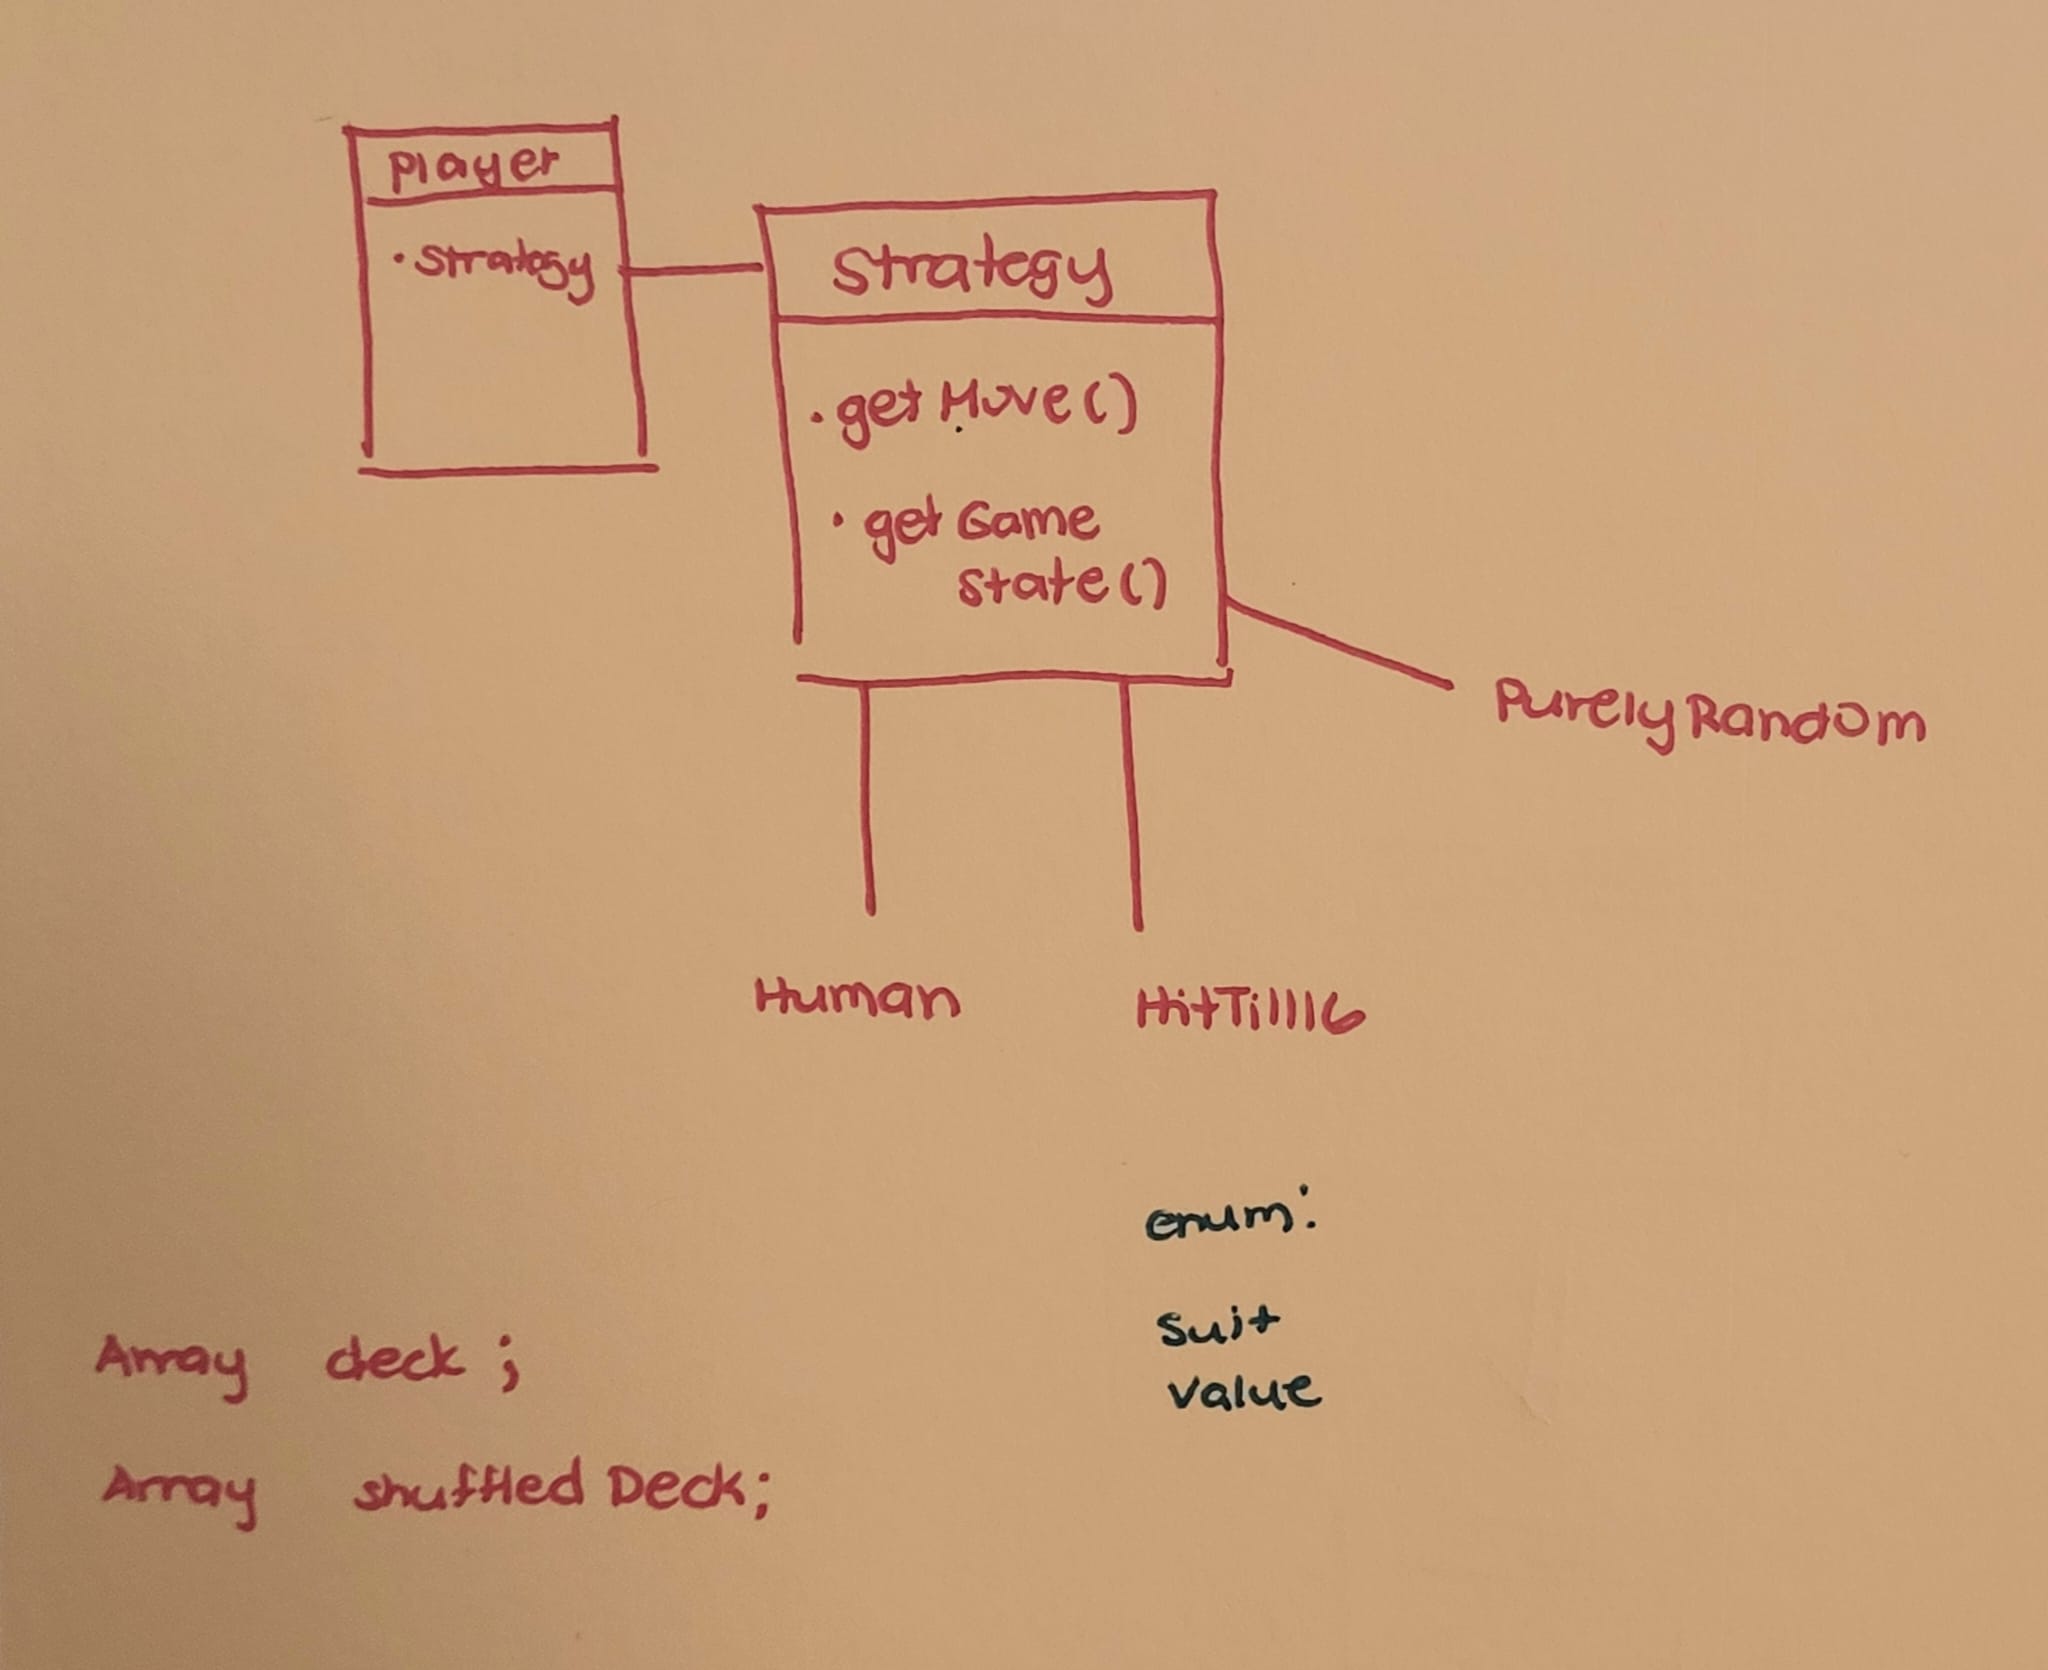 Player
• Strategy
Strategy
• getMove()
• getGame
state()
PurelyRandom
Human
HitTill16
enum:
suit
value
Array deck;
Array shuffledDeck;